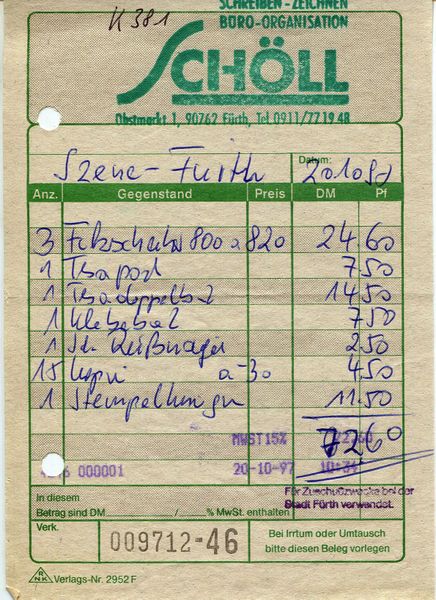 K 381
SCHREIBEN - ZEICHNEN
BÜRO-ORGANISATION
SCHÖLL
Obstmarkt 1, 90762 Fürth, Tel. 0911/77 19 48
Szene-Fürth Datum: 20.10.97
Anz. Gegenstand Preis DM Pf
3 800 a 820 24 60
1 7 50
1 14 50
1 7 50
1 2 50
15 Kopi a -30 4 50
1 11 50
72 60
MWST 15% 72.60
000001 20-10-97 10:34
Für Zuschußzwecke bei der
Stadt Fürth verwendet.
In diesem
Betrag sind DM / % MwSt. enthalten
Verk. 009712-46 Bei Irrtum oder Umtausch
bitte diesen Beleg vorlegen
RNK Verlags-Nr. 2952 F